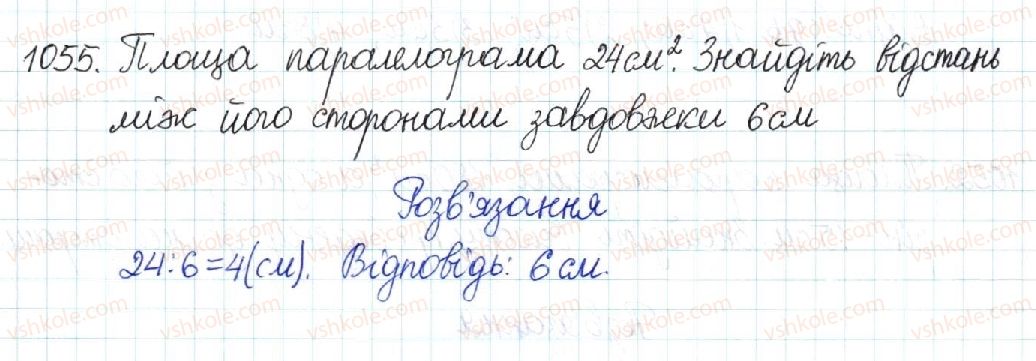 1055. Площа паралелограма 24см². Знайдіть відстань
між його сторонами завдовжки 6см
Розв'язання
24:6=4(см). Відповідь: 6см.
vshkole.com